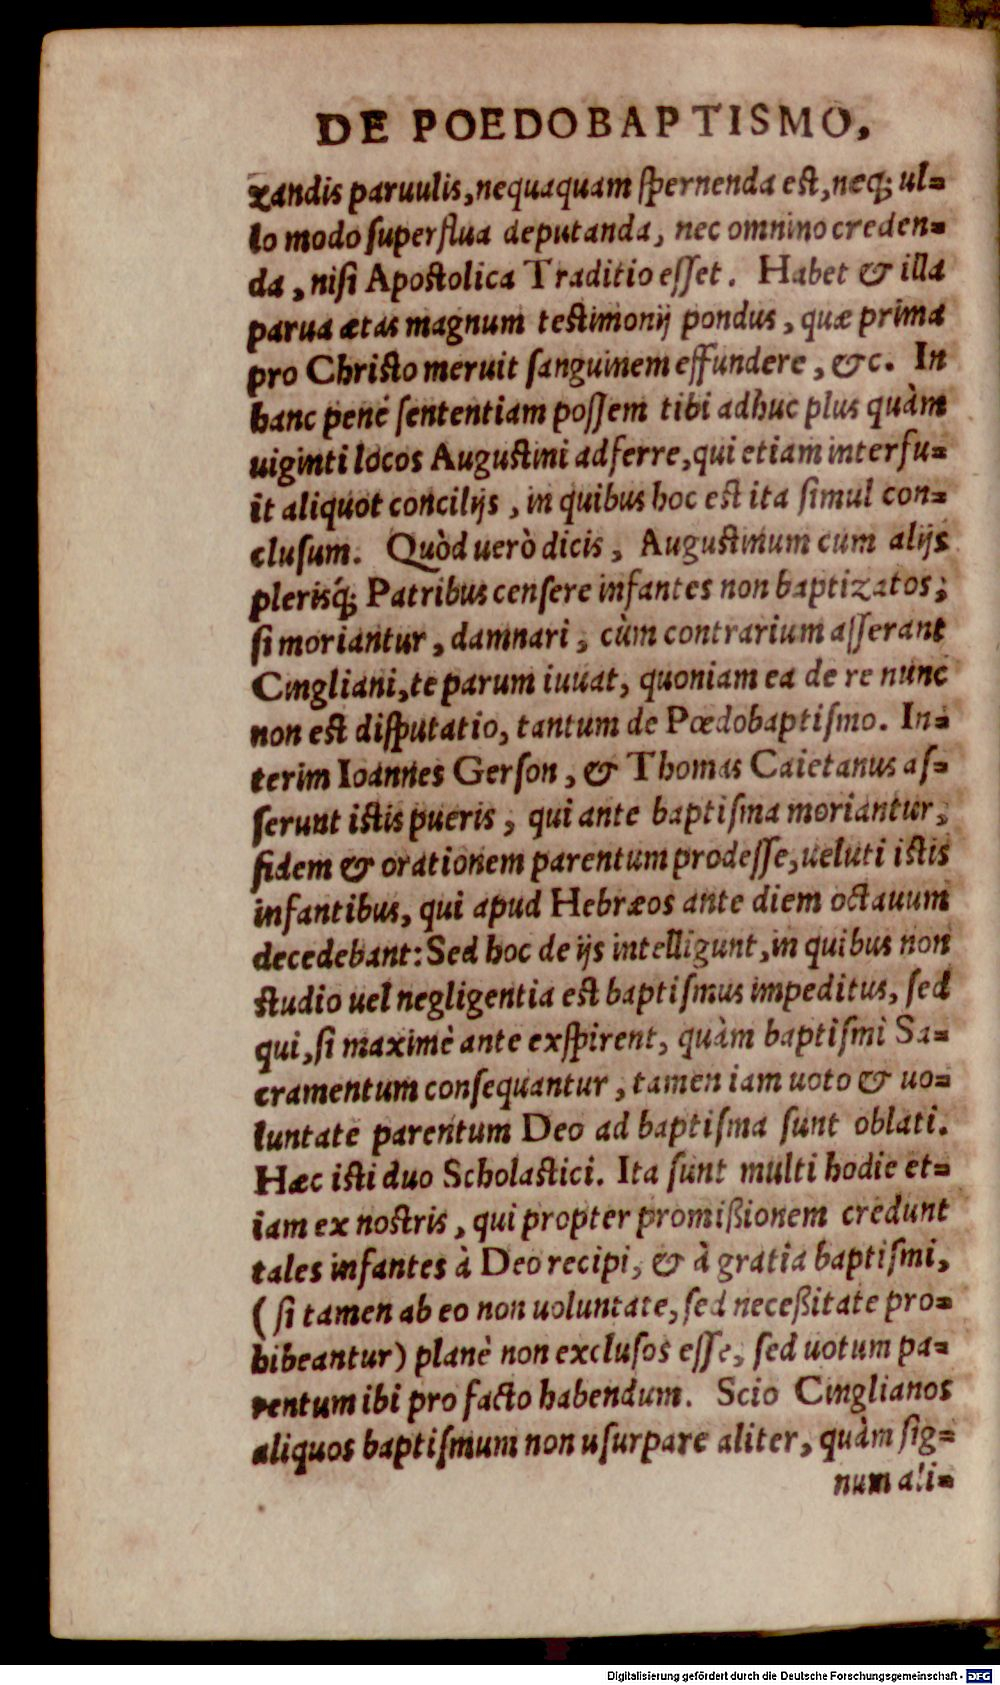 DE POEDOBAPTISMO,
zandis paruulis, nequaquam ſpernenda est, neq; ul-
lo modo ſuperflua deputanda, nec omnino creden-
da, niſi Apostolica Traditio eſſet. Habet & illa
parua ætas magnum testimonij pondus, quæ prima
pro Christo meruit ſanguinem effundere, &c. In
hanc penè ſententiam poſſem tibi adhuc plus quàm
uiginti locos Augustini adferre, qui etiam interfu-
it aliquot concilijs, in quibus hoc est ita ſimul con-
cluſum. Quòd uerò dicis, Augustinum cum alijs
plerisq́; Patribus cenſere infantes non baptizatos;
ſi moriantur, damnari, cùm contrarium aſſerant
Cingliani, te parum iuuat, quoniam ea de re nunc
non est diſputatio, tantum de Pœdobaptiſmo. In-
terim Ioannes Gerſon, & Thomas Caietanus aſ-
ſerunt istis pueris, qui ante baptiſma moriantur,
fidem & orationem parentum prodeſſe, ueluti istis
infantibus, qui apud Hebræos ante diem octauum
decedebant: Sed hoc de ijs intelligunt, in quibus non
studio uel negligentia est baptiſmus impeditus, ſed
qui, ſi maximè ante exſpirent, quàm baptiſmi Sa-
cramentum conſequantur, tamen iam uoto & uo-
luntate parentum Deo ad baptiſma ſunt oblati.
Hæc isti duo Scholastici. Ita ſunt multi hodie et-
iam ex nostris, qui propter promißionem credunt
tales infantes à Deo recipi, & à gratia baptiſmi,
(ſi tamen ab eo non uoluntate, ſed neceßitate pro-
hibeantur) planè non excluſos eſſe, ſed uotum pa-
rentum ibi pro facto habendum. Scio Cinglianos
aliquos baptiſmum non uſurpare aliter, quàm ſig-
num ali-
Digitalisierung gefördert durch die Deutsche Forschungsgemeinschaft - DFG